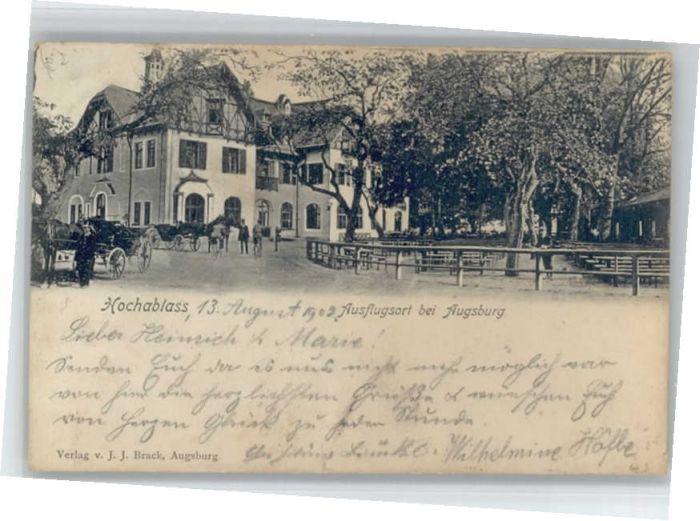 Hochablass, 13. August 1902 Ausflugsort bei Augsburg
Lieber Heinrich & Marie!
Senden Euch da es uns nicht mehr möglich war
von hier die herzlichsten Grüße & wünschen Euch
von Herzen Glück zu jeder Stunde
Wilhelmine Höfle
Verlag v. J. J. Brack, Augsburg.